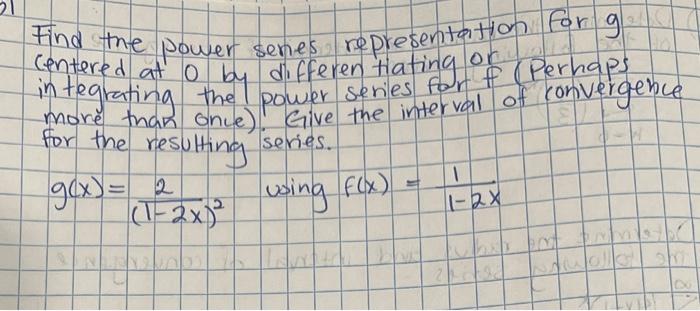 21
Find the power series representation for g
centered at 0 by differentiating or
integrating the power series for f (Perhaps
more than once). Give the interval of convergence
for the resulting series.
g(x) = 2/(1-2x)² using f(x) = 1/1-2x